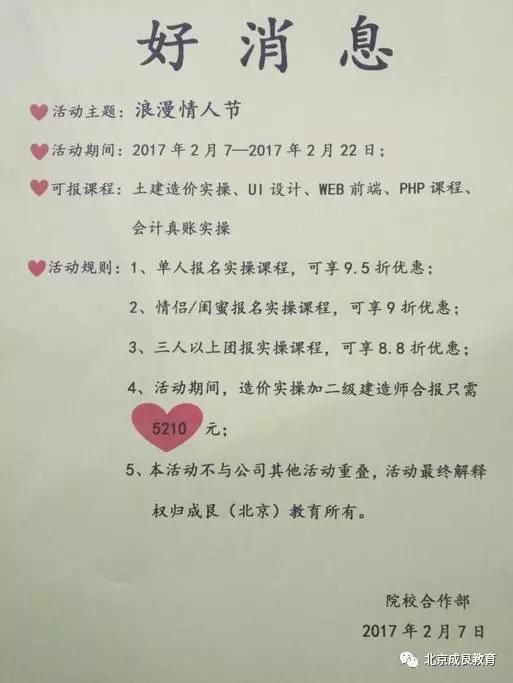 好消息
活动主题：浪漫情人节
活动期间：2017年2月7—2017年2月22日；
可报课程：土建造价实操、UI设计、WEB前端、PHP课程、
会计真账实操
活动规则：1、单人报名实操课程，可享9.5折优惠；
2、情侣/闺蜜报名实操课程，可享9折优惠；
3、三人以上团报实操课程，可享8.8折优惠；
4、活动期间，造价实操加二级建造师合报只需
5210 元；
5、本活动不与公司其他活动重叠，活动最终解释
权归成艮（北京）教育所有。
院校合作部
2017年2月7日
北京成艮教育